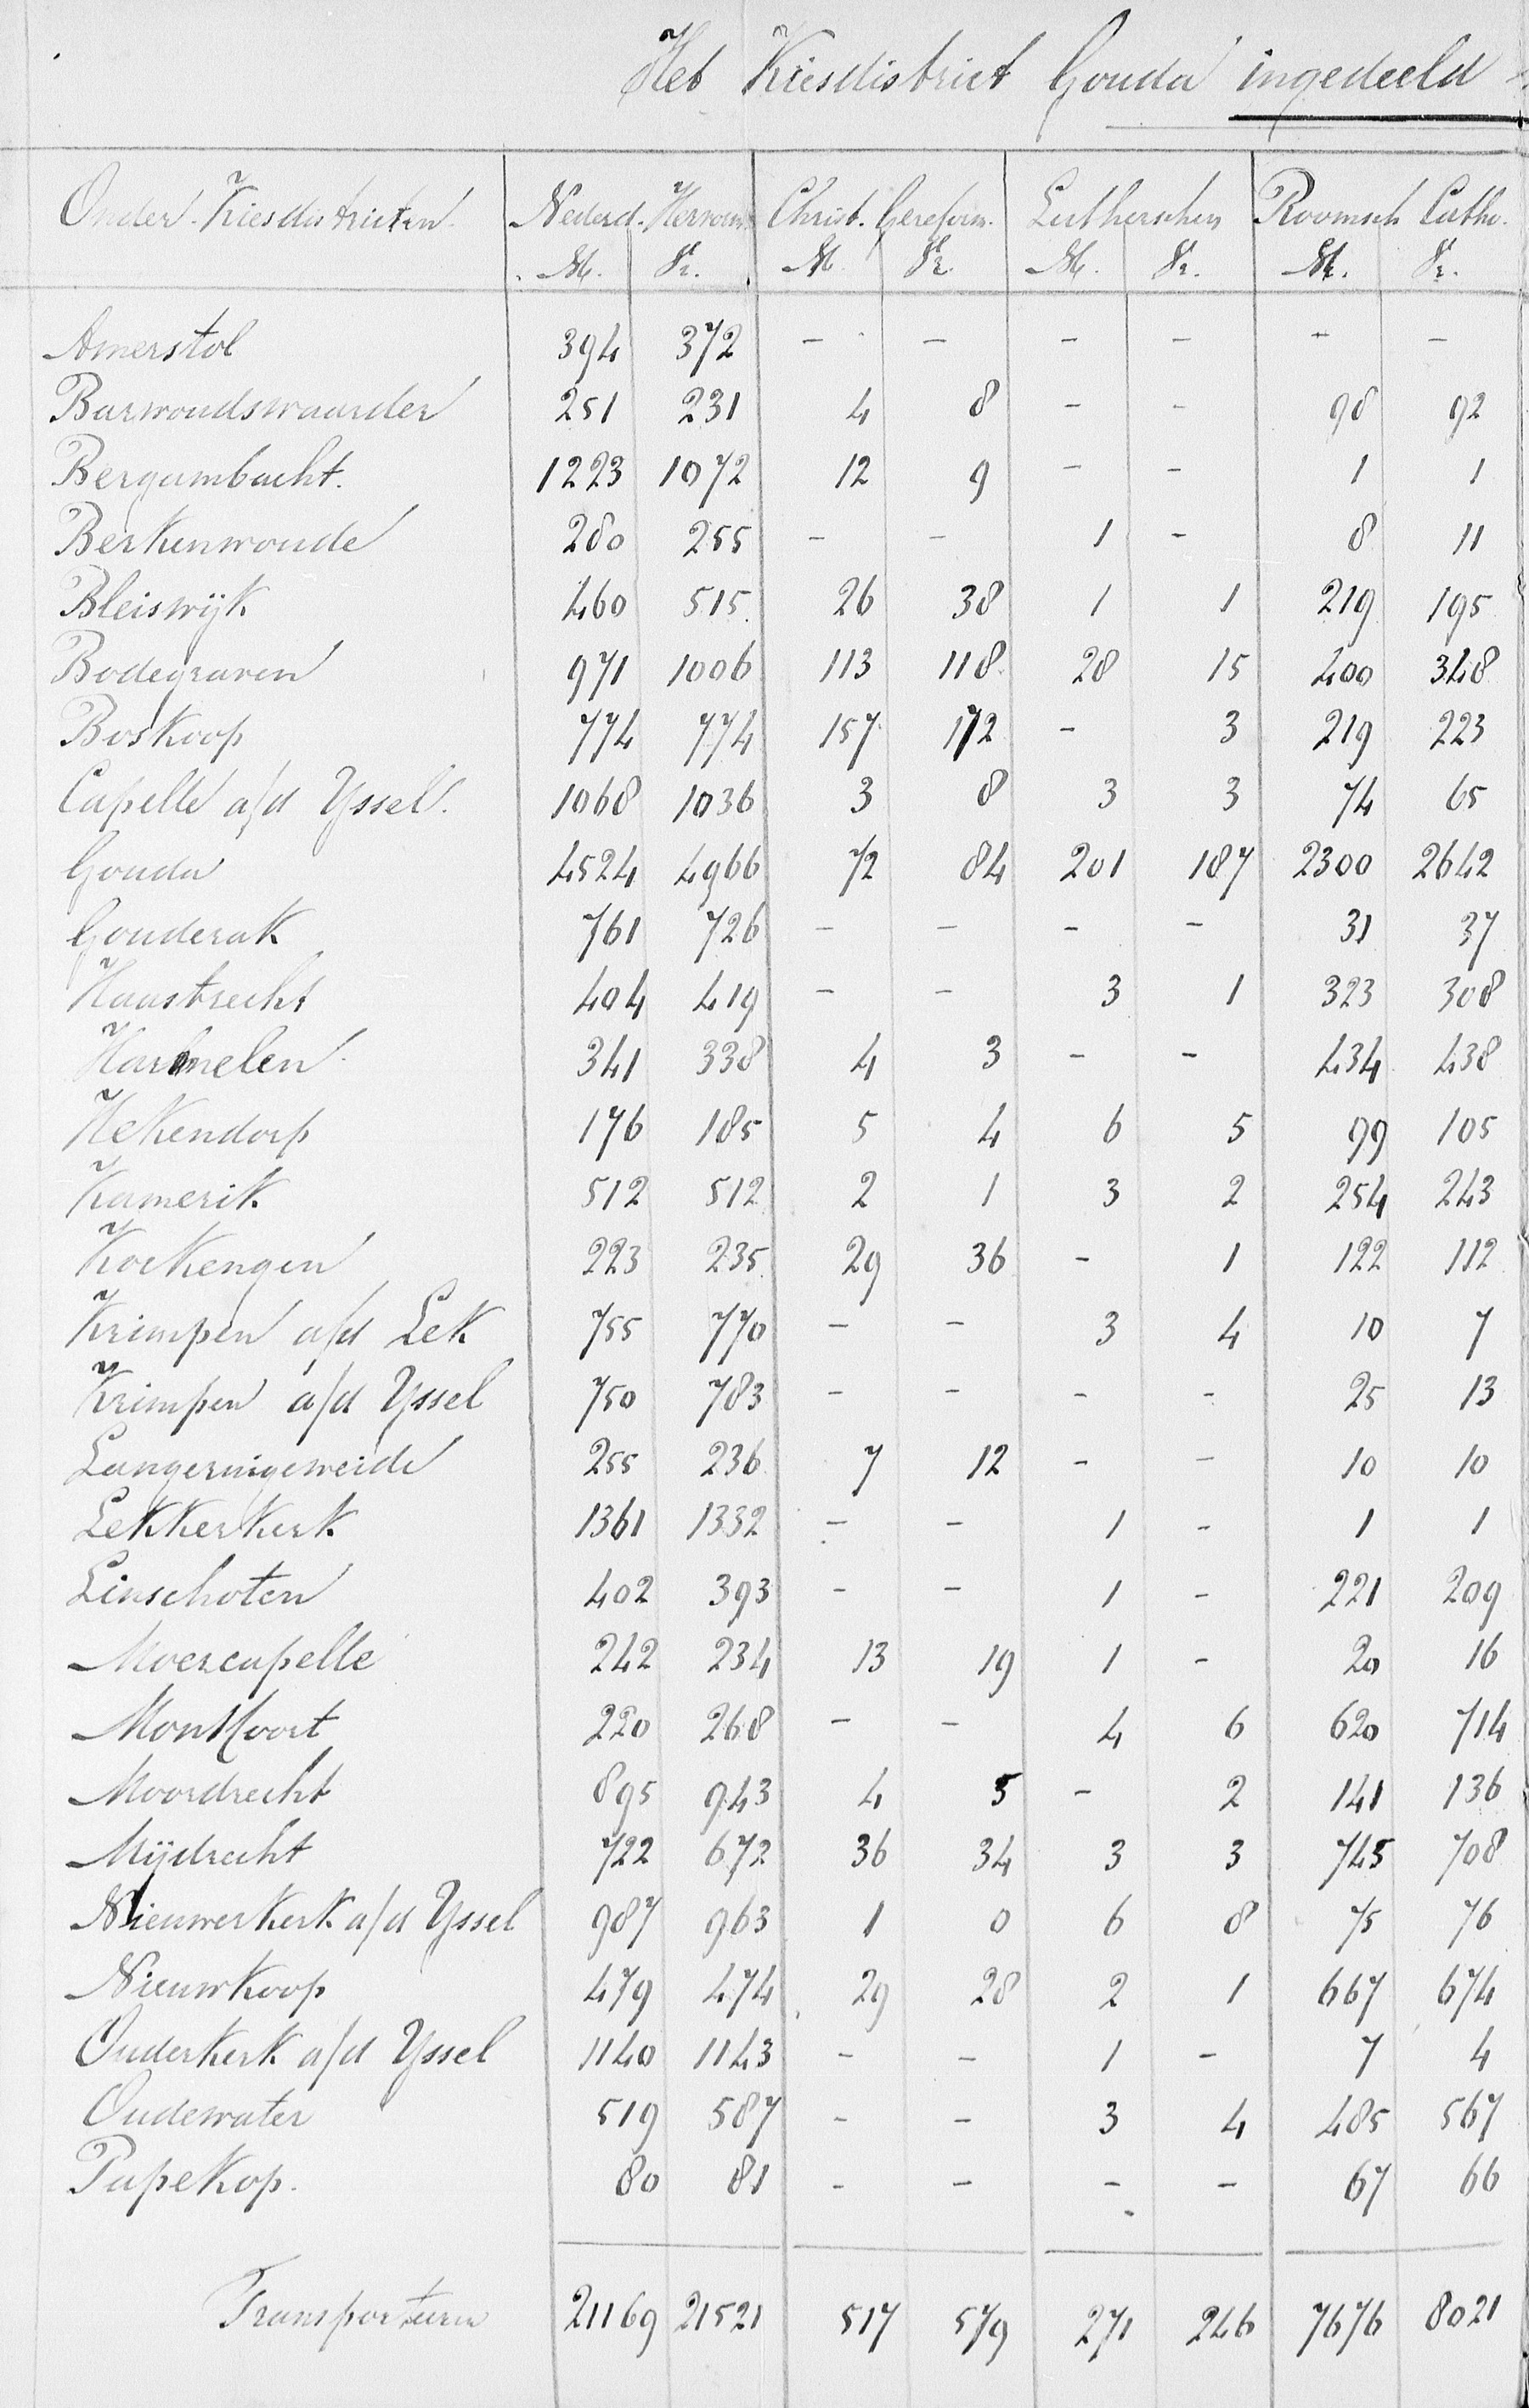 Het Kiesdistrict Gouda ingedeeld
Onder-Kiesdistricten Nederd. Hervorm. Christ. Gereform. Lutherschen Roomsch Catho.
M. Vr. M Vr. M. Vr. M. Vr.
Amerstol 394 372 - - - - - -
Barwoudswaarder 251 231 4 8 - - 98 92
Bergambacht. 1223 1072 12 9 - - 1 1
Berkenwoude 280 255 - - 1 - 8 11
Bleiswijk 460 515 26 38 1 1 219 195
Bodegraven 971 1006 113 118 28 15 400 348
Boskoop 774 774 157 172 - 3 219 223
Capelle a/d Yssel. 1068 1036 3 8 3 3 74 65
Gouda 4524 4966 72 84 201 187 2300 2642
Gouderak 761 726 - - - - 31 37
Haastrecht 404 419 - - 3 1 323 308
Harmelen 341 338 4 3 - - 434 438
Hekendorp 176 185 5 4 6 5 99 105
Kamerik 512 512 2 1 3 2 254 243
Kockengen 223 235 29 36 - 1 122 112
Krimpen a/d Lek 755 770 - - 3 4 10 7
Krimpen a/d Yssel 750 783 - - - - 25 13
Langeruigeweide 255 236 7 12 - - 10 10
Lekkerkerk 1361 1332 - - 1 - 1 1
Linschoten 402 393 - - 1 - 221 209
Moercapelle 242 234 13 19 1 - 20 16
Montfoort 220 268 - - 4 6 620 714
Moordrecht 895 943 4 5 - 2 141 136
Mijdrecht 722 672 36 34 3 3 745 708
Nieuwerkerk a/d Yssel 987 963 1 0 6 8 75 76
Nieuwkoop 479 474 29 28 2 1 667 674
Ouderkerk a/d Yssel 1140 1143 - - 1 - 7 4
Oudewater 519 587 - - 3 4 485 567
Papekop. 80 81 - - - - 67 66
Transporteren 21169 21521 517 579 271 246 7676 8021